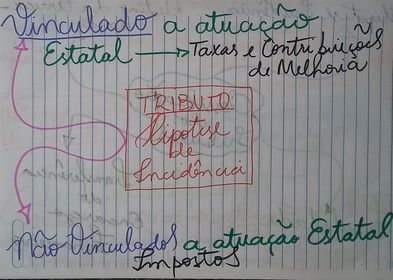 Vinculado a atuação
Estatal → Taxas e Contribuições
de Melhoria
TRIBUTO
Hipótese
de
Incidência
Não Vinculados a atuação Estatal
Impostos